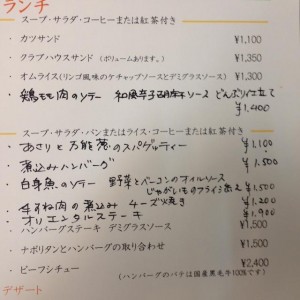 ランチ
スープ・サラダ・コーヒーまたは紅茶付き
・ カツサンド ¥1,100
・ クラブハウスサンド (ボリュームあります。) ¥1,350
・ オムライス(リンゴ風味のケチャップソースとデミグラスソース) ¥1,300
・ 鶏もも肉のソテー 和風辛子胡麻ソース どんぶり仕立て
¥1,400
スープ・サラダ・パンまたはライス・コーヒーまたは紅茶付き
・ あさりと万能葱のスパゲッティー ¥1,100
・ 煮込みハンバーグ ¥1,500
・ 白身魚のソテー 野菜とベーコンのオイルソース
じゃがいものフライ添え ¥1,500
・ 牛すね肉の煮込み チーズ焼き ¥1,200
・ オリエンタルステーキ ¥1,900
・ ハンバーグステーキ デミグラスソース ¥1,500
・ ナポリタンとハンバーグの取り合わせ ¥1,500
・ ビーフシチュー ¥2,400
(ハンバーグのパテは国産黒毛牛100%です)
デザート